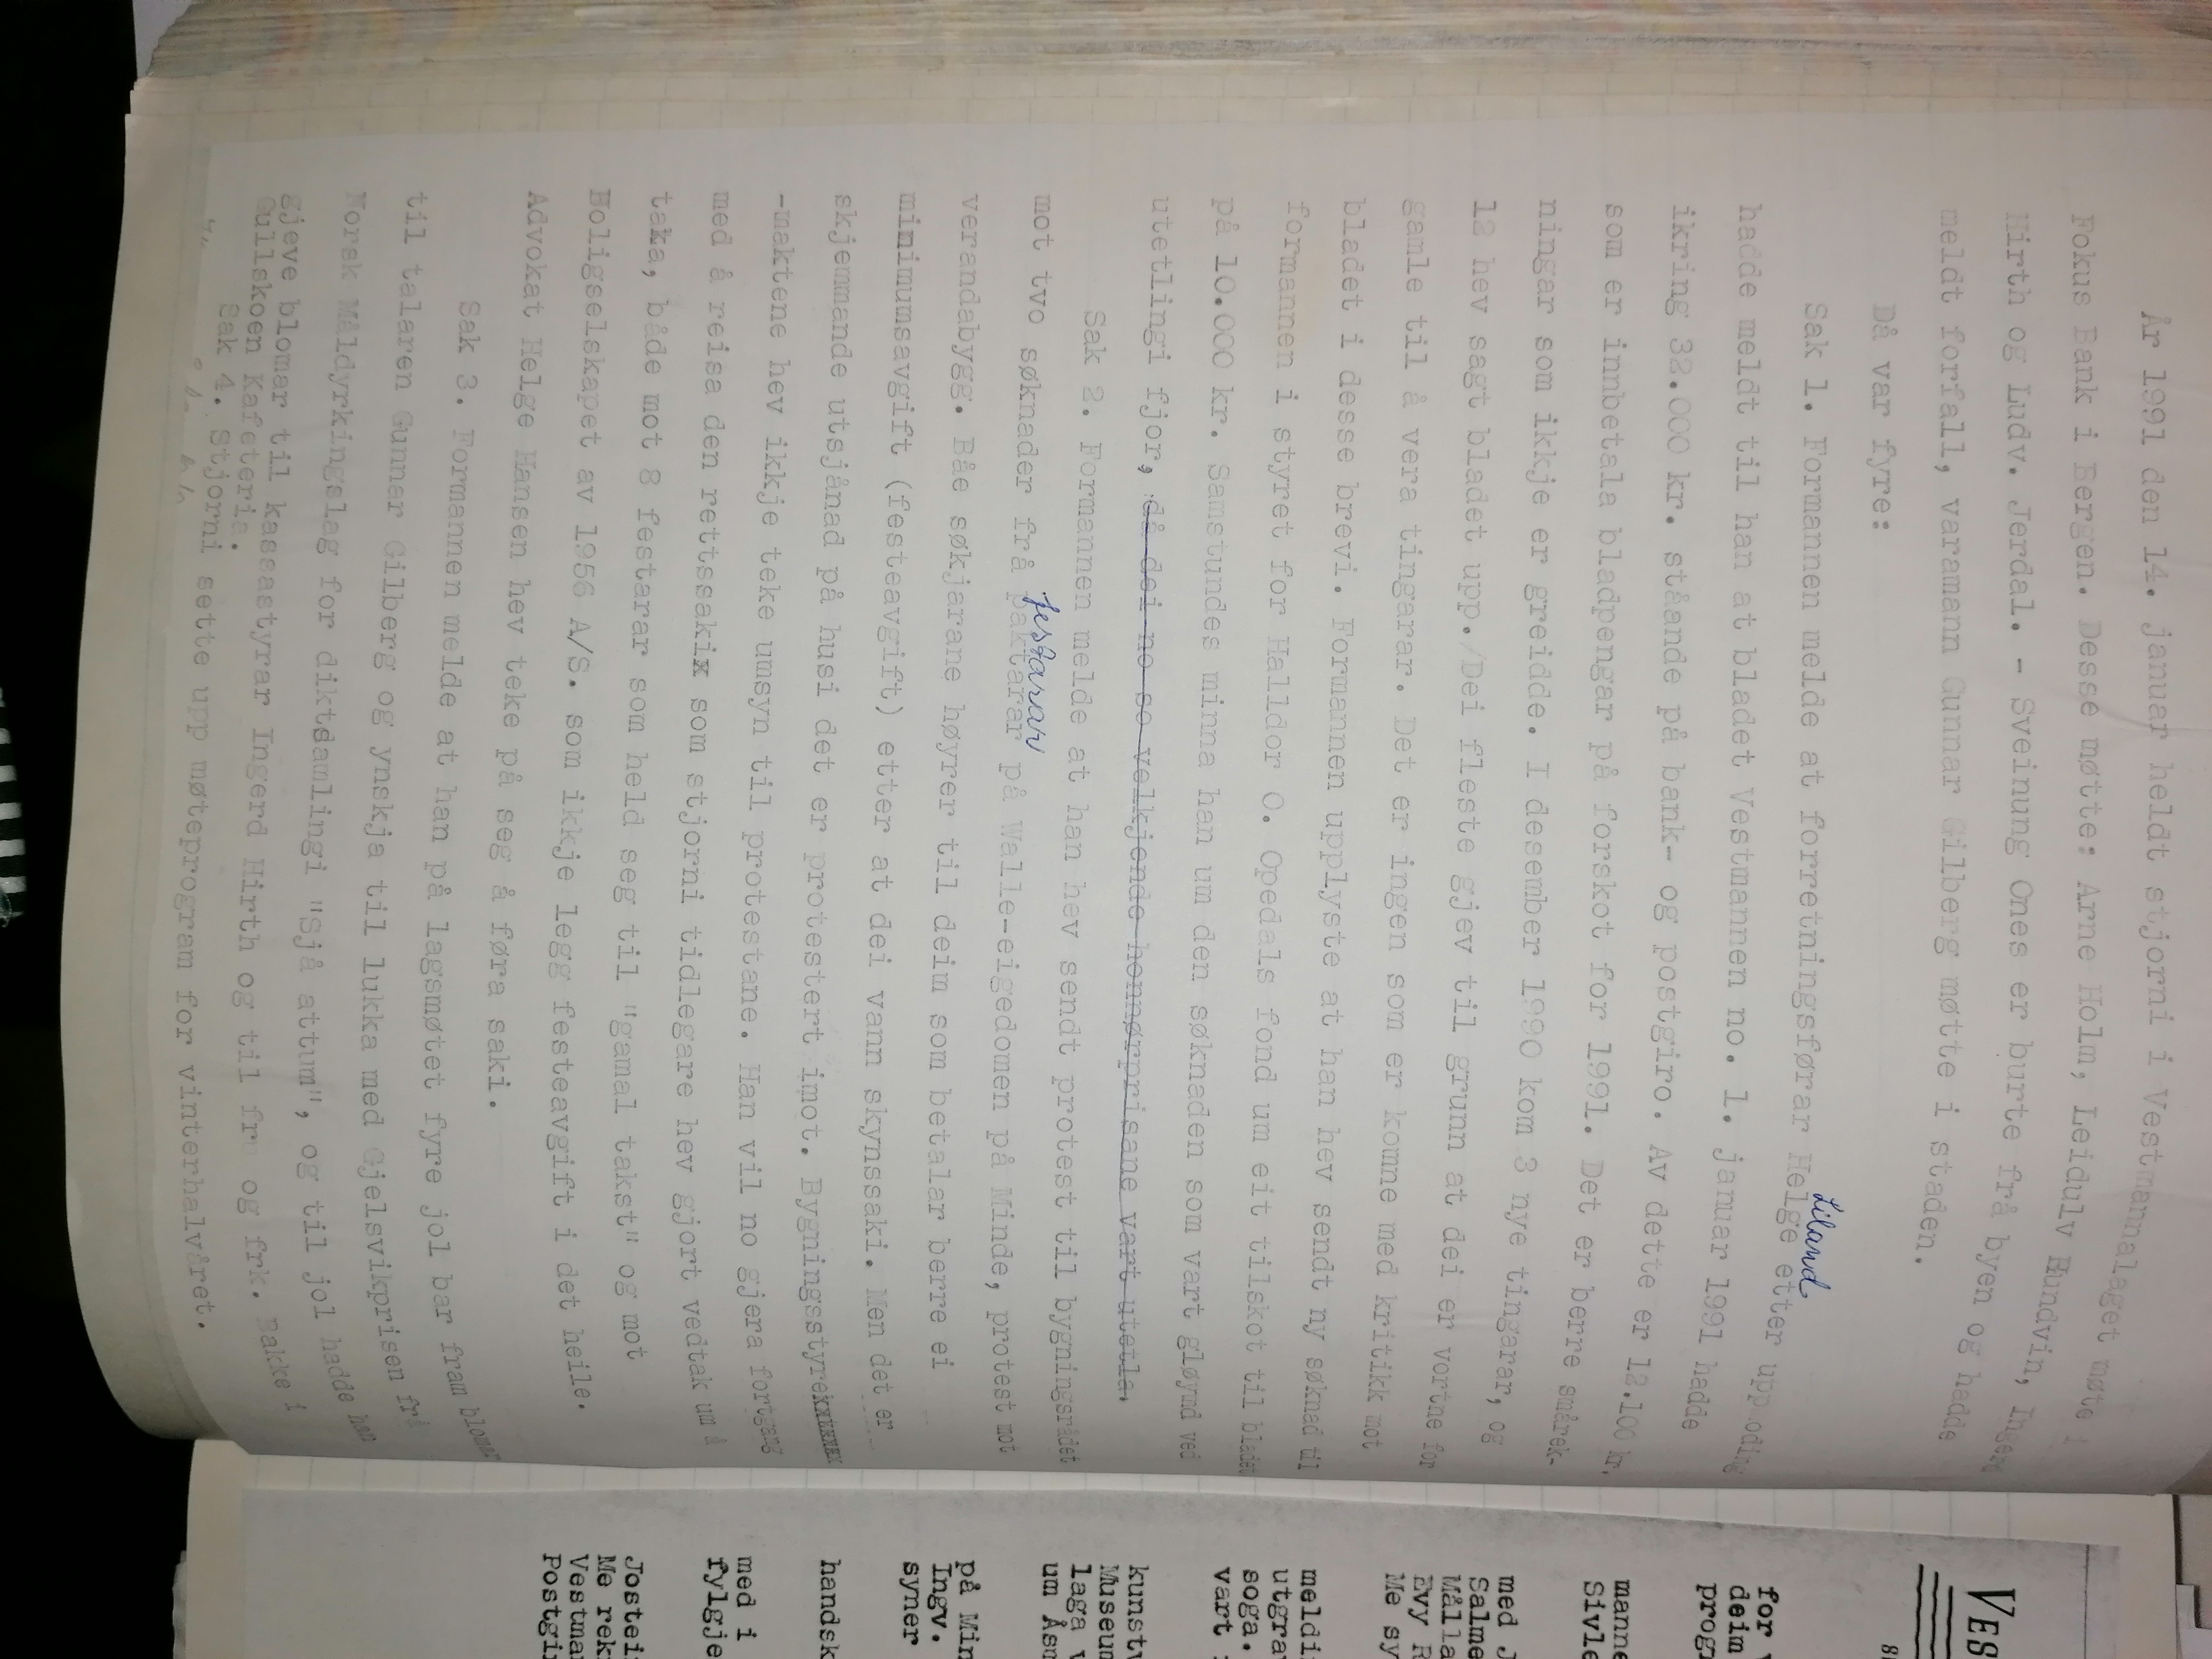 År 1991 den 14. januar heldt stjorni i Vestmannalaget møte i
Fokus Bank i Bergen. Desse møtte: Arne Holm, Leidulv Hundvin,
Hirth og Ludv. Jerdal. - Sveinung Ones er burte frå byen og hadde
meldt forfall, varamann Gunnar Gilberg møtte i staden.
Då var fyre:
Liland
Sak 1. Formannen melde at forretningsførar Helge etter uppmoding
hadde meldt til han at bladet Vestmannen no. 1. januar 1991 hadde
ikring 32.000 kr. ståande på bank- og postgiro. Av dette er 12.100 kr.
som er innbetala bladpengar på forskot for 1991. Det er berre smårek-
ningar som ikkje er greidde. I desember 1990 kom 3 nye tingarar, og
12 hev sagt bladet upp./Dei fleste gjev til grunn at dei er vortne for
gamle til å vera tingarar. Det er ingen som er komne med kritikk mot
bladet i desse brevi. Formannen upplyste at han hev sendt ny søknad til
formannen i styret for Halldor O. Opedals fond um eit tilskot til bladet
på 10.000 kr. Samstundes minna han um den søknaden som vart gløymd ved
utetlingi fjor, då dei no so velkjende honnørprisane vart utetla.
Sak 2. Formannen melde at han hev sendt protest til bygningsrådet
festarar
mot tvo søknader frå paktarar på Walle-eigedomen på Minde, protest mot
verandabygg. Båe søkjarane høyrer til deim som betalar berre ei
minimumsavgift (festeavgift) etter at dei vann skynssaki. Men det er
skjemmande utsjånad på husi det er protestert imot. Bygningsstyre
-maktene hev ikkje teke umsyn til protestane. Han vil no gjera fortgang
med å reisa den rettssakix som stjorni tidlegare hev gjort vedtak um å
taka, både mot 8 festarar som held seg til "gamal takst" og mot
Boligselskapet av 1956 A/S. som ikkje legg festeavgift i det heile.
Advokat Helge Hansen hev teke på seg å føra saki.
Sak 3. Formannen melde at han på lagsmøtet fyre jol bar fram blomar
til talaren Gunnar Gilberg og ynskja til lukka med Gjelsvikprisen frå
Norsk Måldyrkingslag for diktsamlingi "Sjå attum", og til jol hadde han
gjeve blomar til kassastyrar Ingerd Hirth og til frm og frk. Bakke i
Gullskoen Kafeteria.
Sak 4. Stjorni sette upp møteprogram for vinterhalvåret.
VES
for V
deim
prog
manne
Sivle
med J
Salme
Målla
Evy R
Me sy
meldi
utgra
soga.
vart
kunst
Museu
laga V
um Åsm
på Min
Ingv.
syner
handsk
med i
fylgje
Jostei
Me rek
Vestma
Postgi